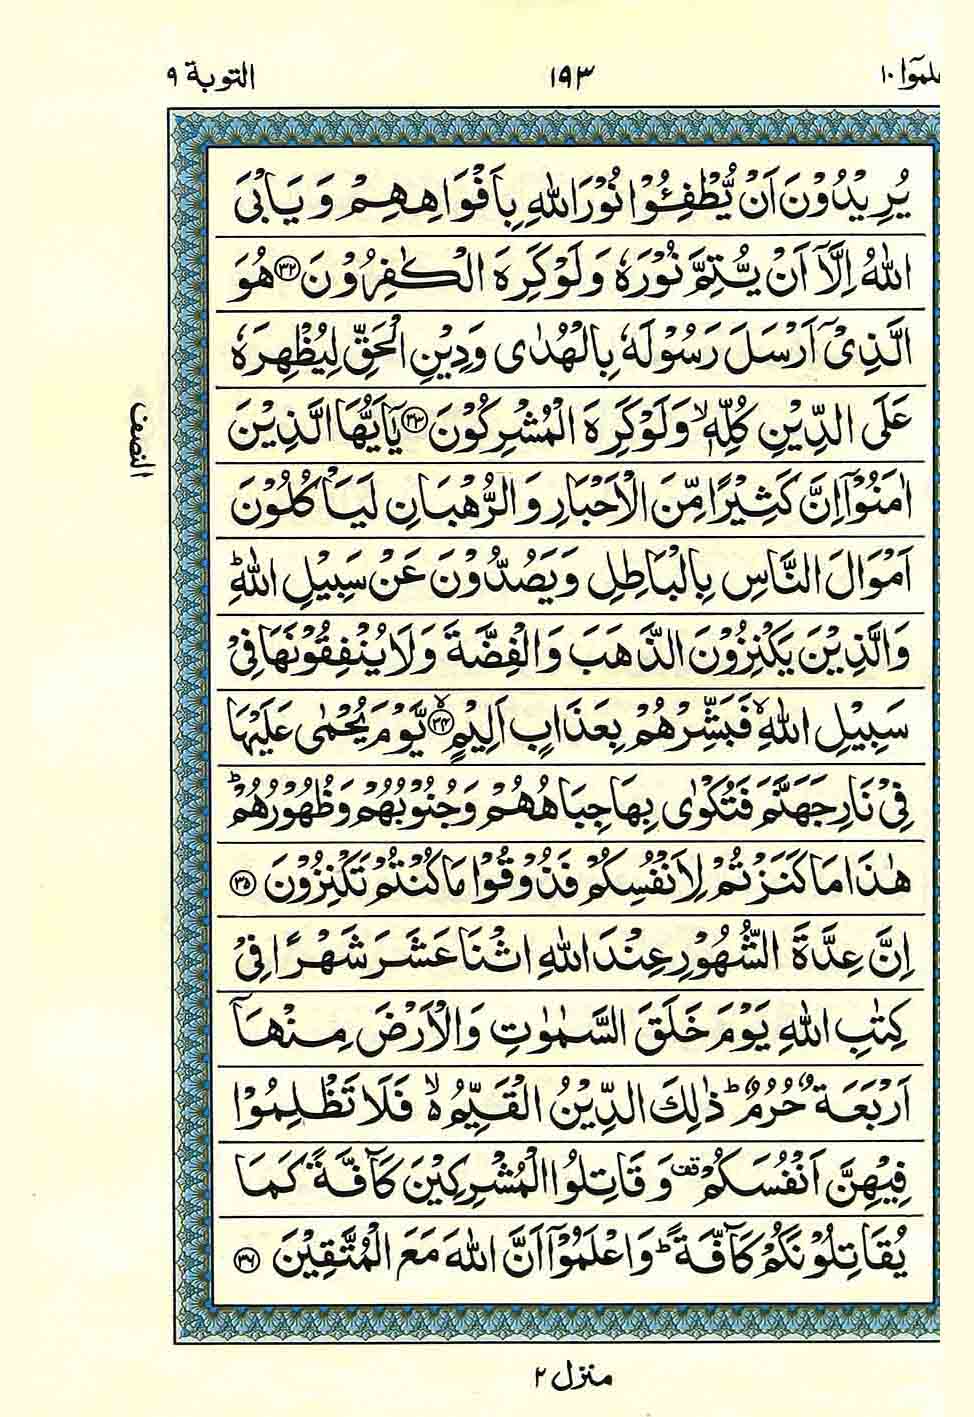 علموا ١٠
١٩٣
التوبة ٩
يُرِيْدُوْنَ اَنْ يُّطْفِـُٔوْا نُوْرَ اللّٰهِ بِاَفْوَاهِهِمْ وَيَاْبَى
اللّٰهُ اِلَّاۤ اَنْ يُّتِمَّ نُوْرَهٗ وَلَوْ كَرِهَ الْكٰفِرُوْنَ ﴿۳۲﴾ هُوَ
الَّذِيْۤ اَرْسَلَ رَسُوْلَهٗ بِالْهُدٰى وَدِيْنِ الْحَقِّ لِيُظْهِرَهٗ
عَلَى الدِّيْنِ كُلِّهٖ ۙ وَلَوْ كَرِهَ الْمُشْرِكُوْنَ ﴿۳۳﴾ يٰۤاَيُّهَا الَّذِيْنَ
اٰمَنُوْۤا اِنَّ كَثِيْرًا مِّنَ الْاَحْبَارِ وَالرُّهْبَانِ لَيَاْكُلُوْنَ
اَمْوَالَ النَّاسِ بِالْبَاطِلِ وَيَصُدُّوْنَ عَنْ سَبِيْلِ اللّٰهِ ؕ
وَالَّذِيْنَ يَكْنِزُوْنَ الذَّهَبَ وَالْفِضَّةَ وَلَا يُنْفِقُوْنَهَا فِيْ
سَبِيْلِ اللّٰهِ ۙ فَبَشِّرْهُمْ بِعَذَابٍ اَلِيْمٍ ﴿۳۴﴾ۙ يَّوْمَ يُحْمٰى عَلَيْهَا
فِيْ نَارِ جَهَنَّمَ فَتُكْوٰى بِهَا جِبَاهُهُمْ وَجُنُوْبُهُمْ وَظُهُوْرُهُمْ ؕ
هٰذَا مَا كَنَزْتُمْ لِاَنْفُسِكُمْ فَذُوْقُوْا مَا كُنْتُمْ تَكْنِزُوْنَ ﴿۳۵﴾
اِنَّ عِدَّةَ الشُّهُوْرِ عِنْدَ اللّٰهِ اثْنَا عَشَرَ شَهْرًا فِيْ
كِتٰبِ اللّٰهِ يَوْمَ خَلَقَ السَّمٰوٰتِ وَالْاَرْضَ مِنْهَاۤ
اَرْبَعَةٌ حُرُمٌ ؕ ذٰلِكَ الدِّيْنُ الْقَيِّمُ ۙ۬ فَلَا تَظْلِمُوْا
فِيْهِنَّ اَنْفُسَكُمْ قف وَقَاتِلُوا الْمُشْرِكِيْنَ كَآفَّةً كَمَا
يُقَاتِلُوْنَكُمْ كَآفَّةً ؕ وَاعْلَمُوْۤا اَنَّ اللّٰهَ مَعَ الْمُتَّقِيْنَ ﴿۳۶﴾
النصف
منزل ٢